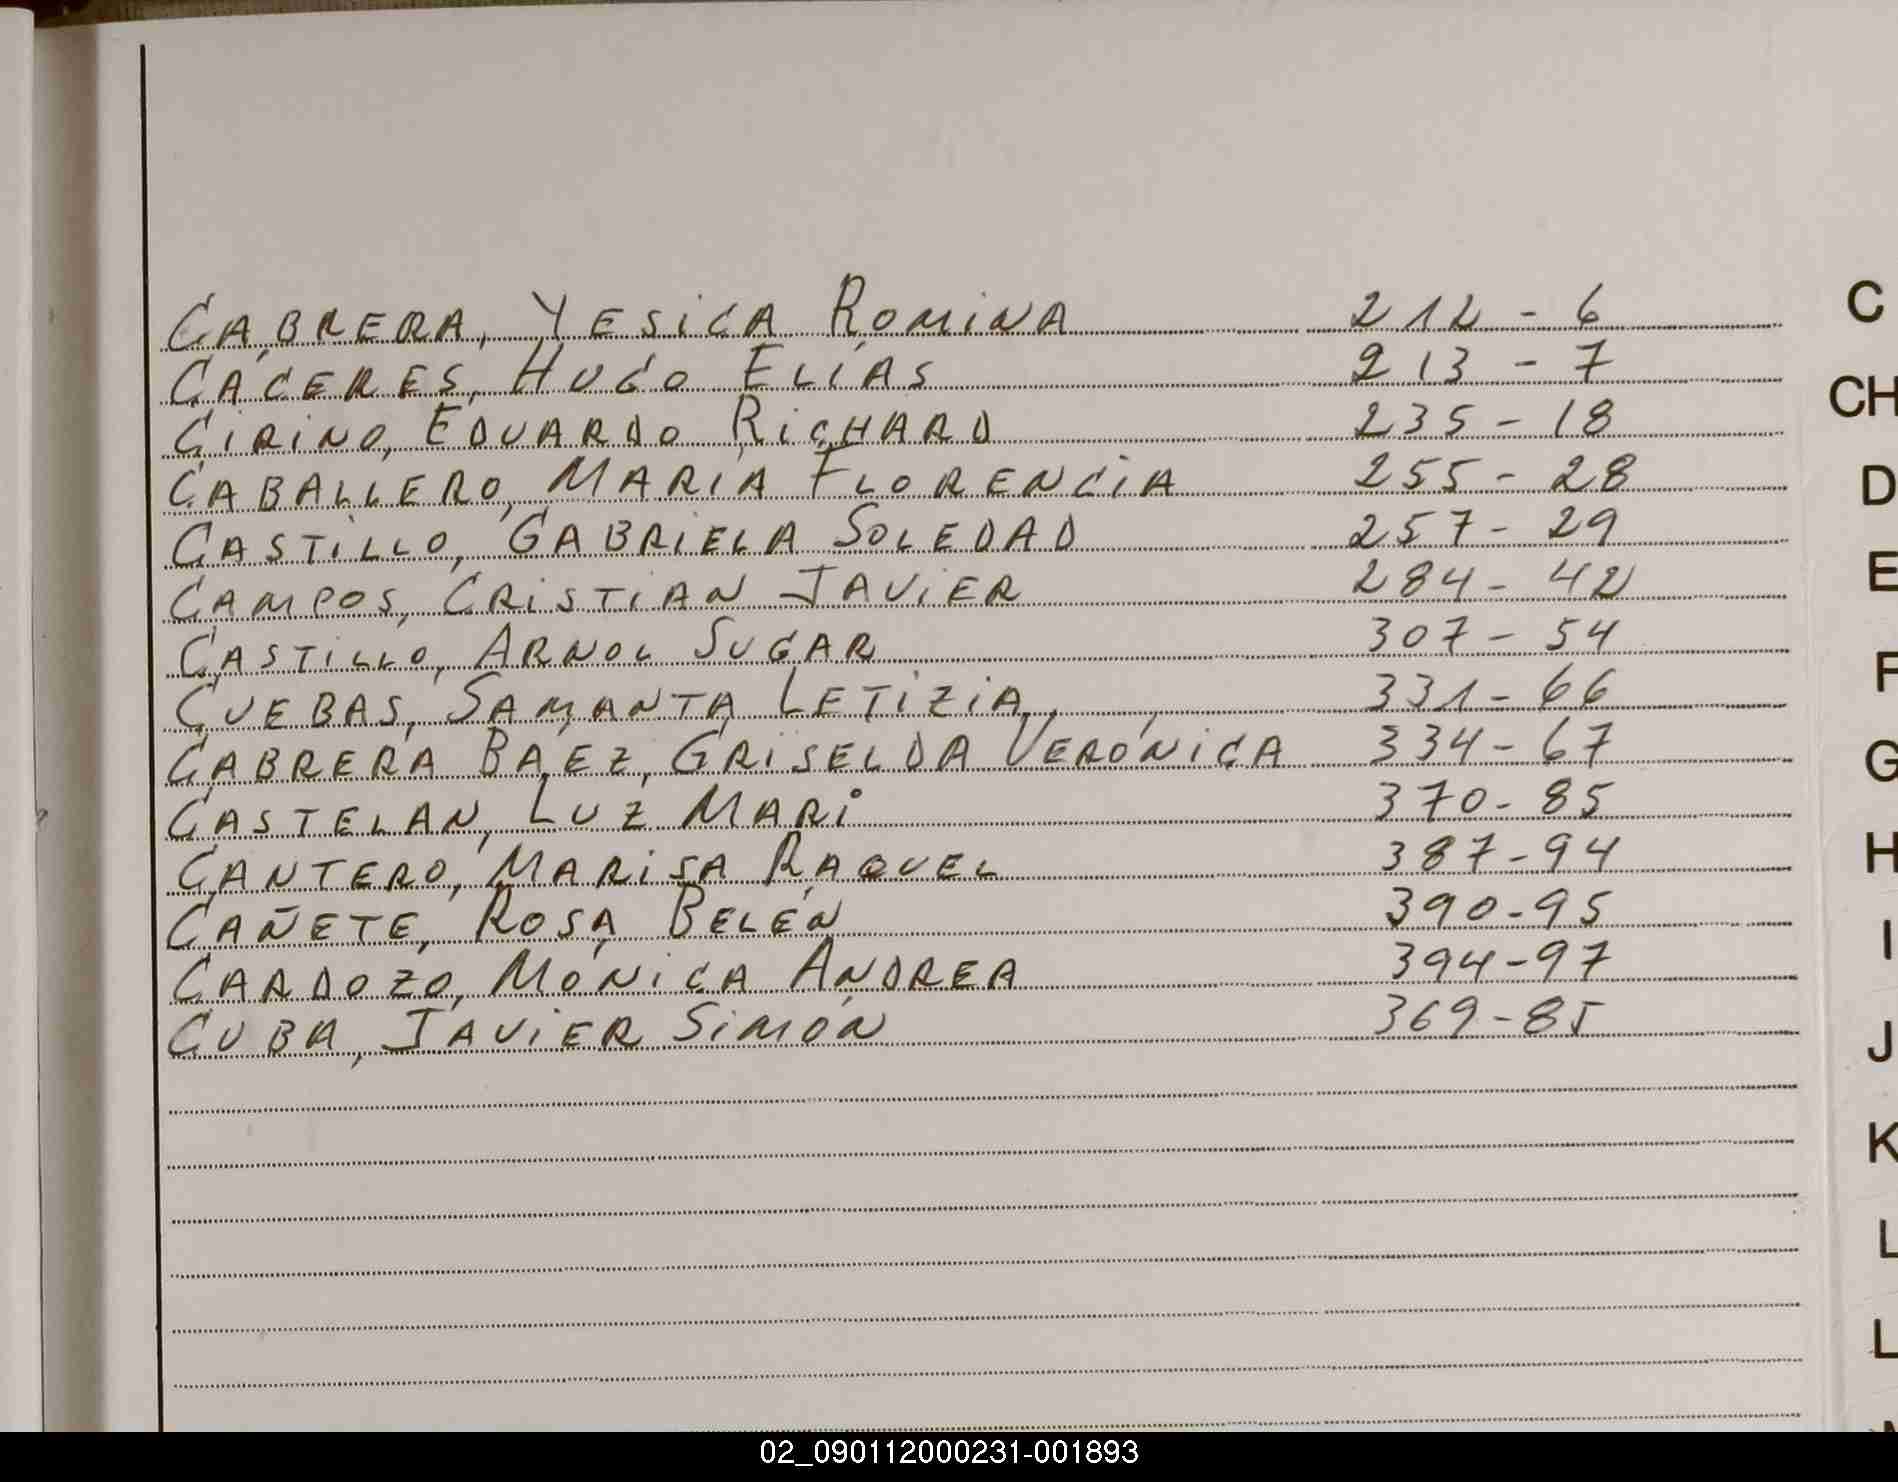 CABRERA, YESICA ROMINA 212 - 6
CÁCERES, HUGO ELÍAS 213 - 7
CIRINO, EDUARDO RICHARD 235 - 18
CABALLERO, MARÍA FLORENCIA 255 - 28
CASTILLO, GABRIELA SOLEDAD 257 - 29
CAMPOS, CRISTIAN JAVIER 284 - 42
CASTILLO, ARNOL SUGAR 307 - 54
CUEBAS, SAMANTA LETIZIA 331 - 66
CABRERA BAEZ, GRISELDA VERÓNICA 334 - 67
CASTELAN, LUZ MARI 370 - 85
CANTERO, MARISA RAQUEL 387 - 94
CAÑETE, ROSA BELÉN 390 - 95
CARDOZO, MÓNICA ANDREA 394 - 97
CUBA, JAVIER SIMÓN 369 - 85
C
CH
D
E
F
G
H
I
J
K
L
L
02_090112000231-001893